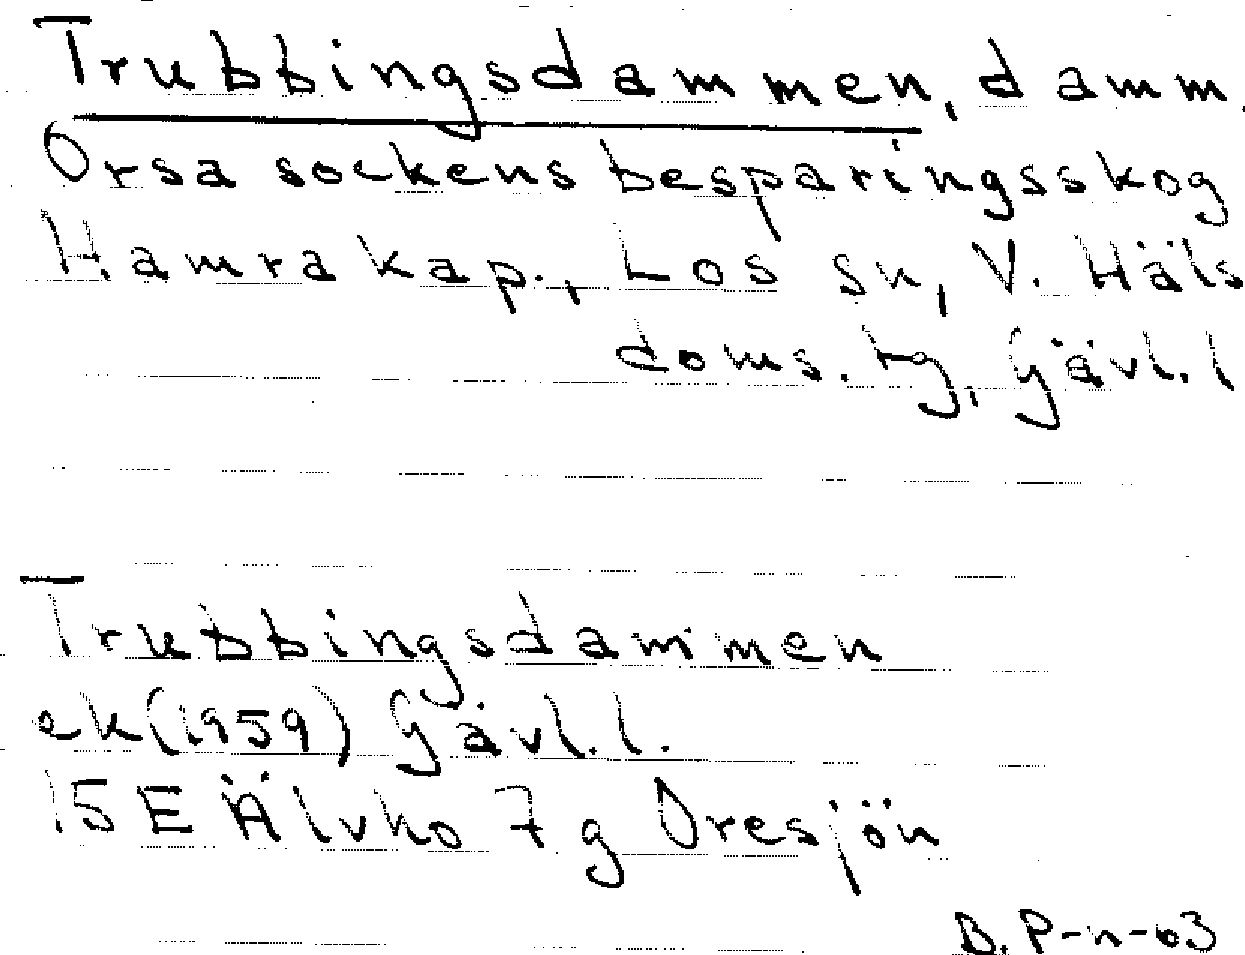 Trubbingsdammen, damm.
Orsa sockens besparingsskog
Hamra kap., Los sn, V. Häls
doms. tg, Gävl. l
Trubbingsdammen
ek (1959) Gävl. l.
15 E Älvho 7 g Oresjön
B. P-n-63